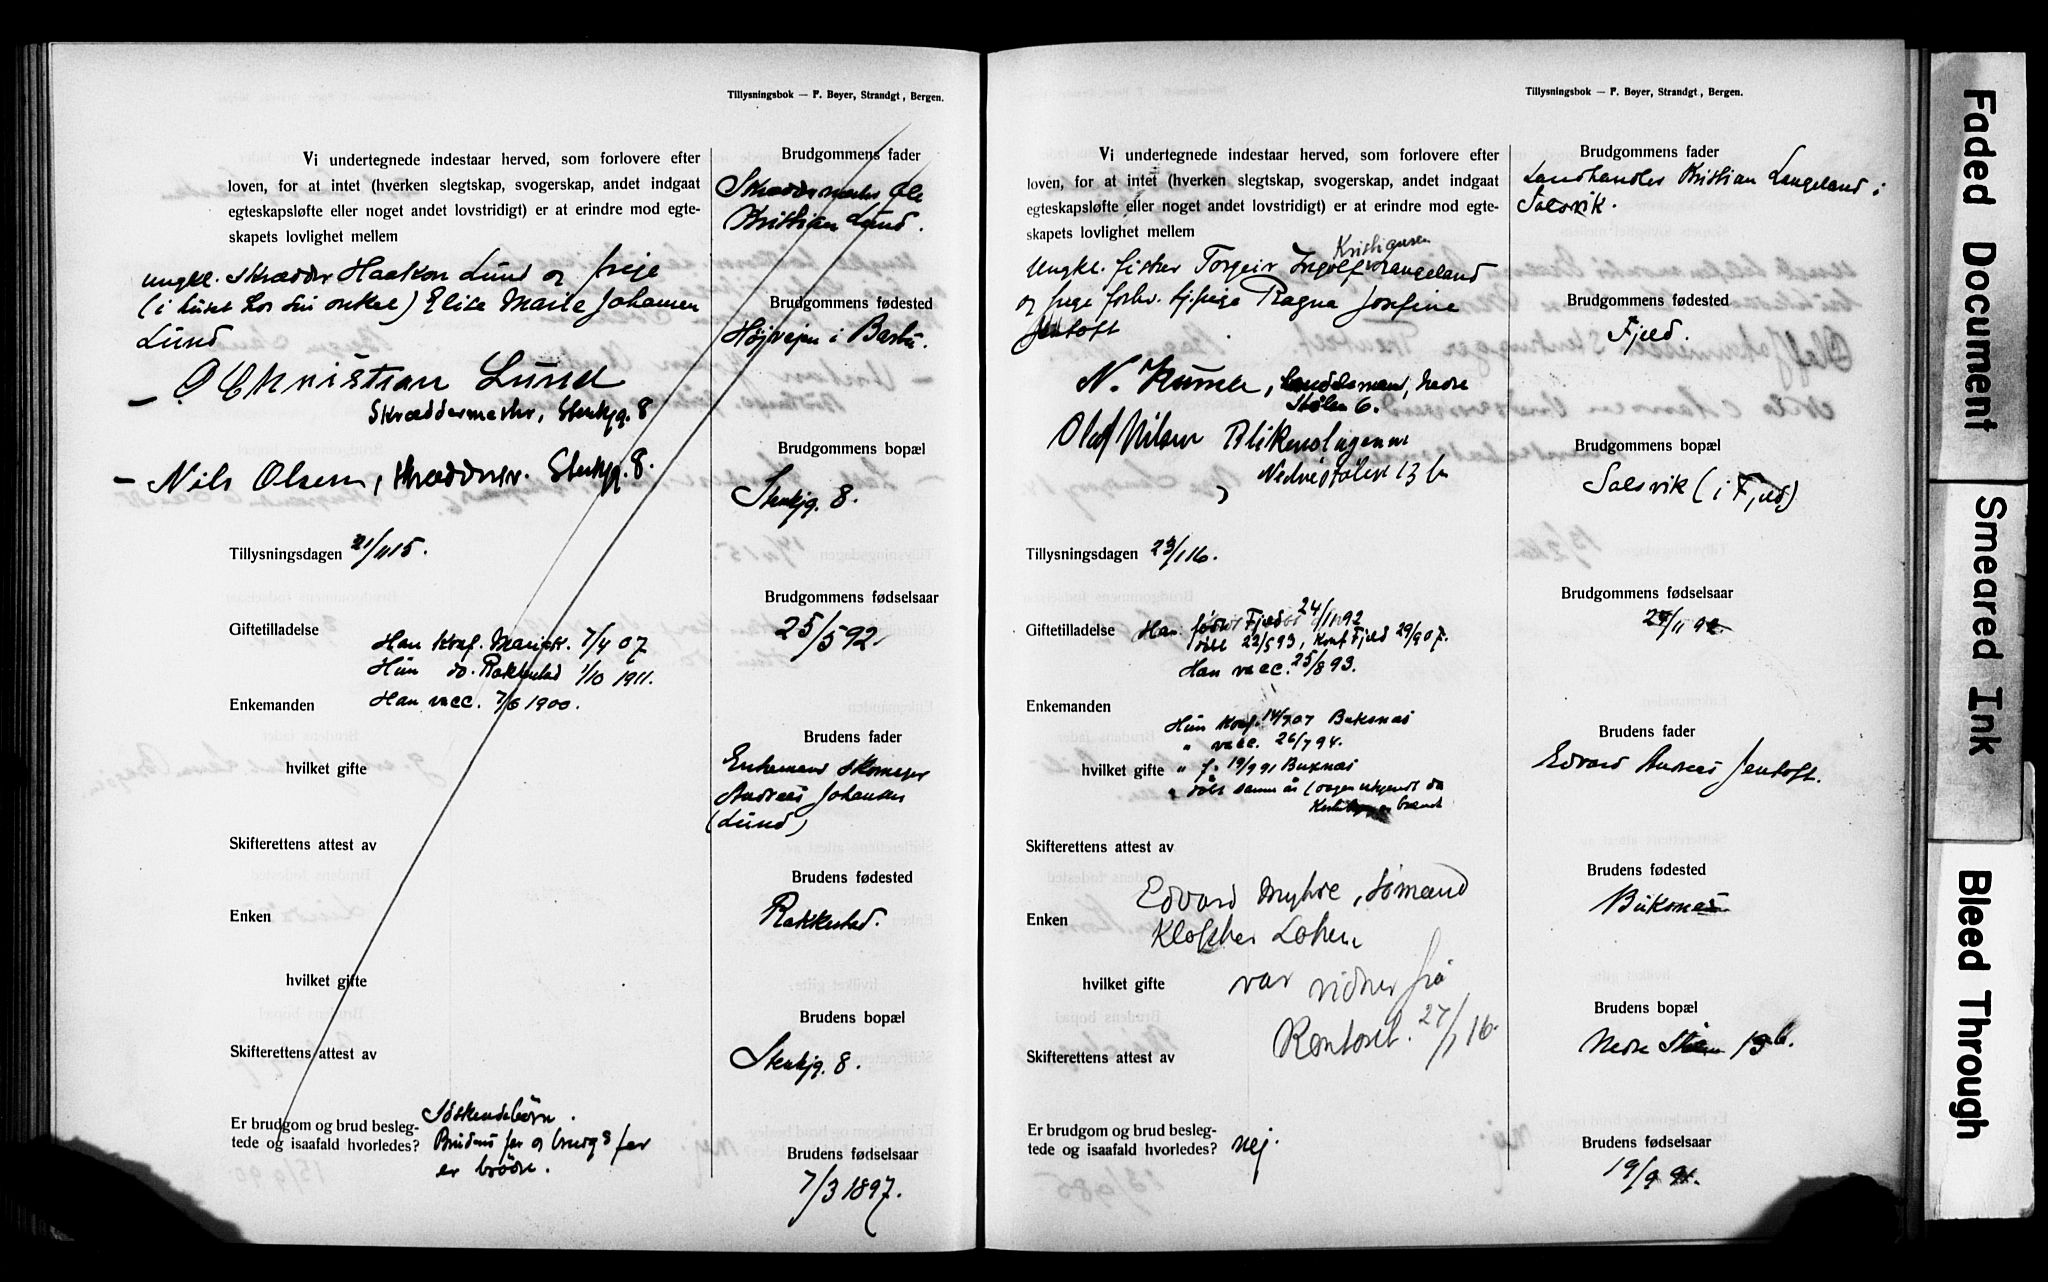 Tillysningsbok — F. Bøyer, Strandgt, Bergen.
Vi undertegnede indestaar herved, som forlovere efter
loven, for at intet (hverken slegtskap, svogerskap, andet indgaat
egteskapsløfte eller noget andet lovstridigt) er at erindre mod egte-
skapets lovlighet mellem
ungkl. Skrædder Haakon Lund og pige
(i huset hos sin onkel) Elise Marie Johansen
Lund
— O Christian Lund
Skræddermester, Stenkjg. 8
— Nils Olsen, skrædder. Stenkjg. 8.
Tillysningsdagen 21/11 15.
Giftetilladelse
Han konf. 7/4 07
Hun do. Rakkestad 1/10 1911.
Enkemanden
Han vacc. 7/6 1900.
hvilket gifte
Skifterettens attest av
Enken
hvilket gifte
Skifterettens attest av
Er brudgom og brud besleg-
tede og isaafald hvorledes?
Søskendebørn.
Brudens far og brudg's far
er brødre.
Brudgommens fader
Skræddermester Ole
Kristian Lund.
Brudgommens fødested
Højvejen i Barbu.
Brudgommens bopæl
Stenkjg. 8.
Brudgommens fødselsaar
25/5 92.
Brudens fader
Enkemand skomager
Andreas Johansen
(Lund)
Brudens fødested
Rakkestad.
Brudens bopæl
Stenkjg. 8.
Brudens fødselsaar
7/3 1897.
Tillysningsbok — F. Bøyer, Strandgt, Bergen.
Vi undertegnede indestaar herved, som forlovere efter
loven, for at intet (hverken slegtskap, svogerskap, andet indgaat
egteskapsløfte eller noget andet lovstridigt) er at erindre mod egte-
skapets lovlighet mellem
Kristiansen
Ungkl. fisker Torgeir Ingolf Langeland
og pige forhv. tj.pige Ragna Josefine
Jentoft
N. Kumle, Nedre
Stølen 6.
Olaf Nilsen Blikenslagerm
Nedrestølen 13 b
Tillysningsdagen 23/1 16.
Giftetilladelse
Han født Fjeld 24/11 92
døbt 22/5 93, Konf Fjeld 29/9 07.
Han vacc. 25/8 93.
Enkemanden
Hun konf. 14/7 07 Buksnæs
" vacc. 26/7 94.
hvilket gifte
" f. 19/9 91 Buksnæs
" døbt samme år (dagen ukjendt da
brændt
Skifterettens attest av
Enken
Edvard Myhre, Sømand
Lohen
hvilket gifte
var vidner fra
Kontoret. 27/1 16.
Skifterettens attest av
Er brudgom og brud besleg-
tede og isaafald hvorledes? nej.
Brudgommens fader
Landhandler Kristian Langeland i
Solsvik.
Brudgommens fødested
Fjeld.
Brudgommens bopæl
Solsvik (i Fjeld)
Brudgommens fødselsaar
24/11 92.
Brudens fader
Edvard Andreas Jentoft.
Brudens fødested
Buksnæs
Brudens bopæl
Nedre Stølen 13 b.
Brudens fødselsaar
19/9 91.
Faded Document
Smeared Ink
Bleed Through